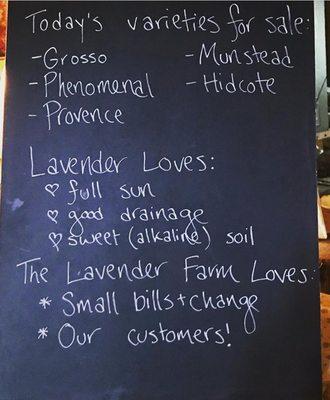 Today's varieties for sale:
- Grosso - Munstead
- Phenomenal - Hidcote
- Provence
Lavender Loves:
♡ full sun
♡ good drainage
♡ sweet (alkaline) soil
The Lavender Farm Loves:
* Small bills + change
* Our customers!